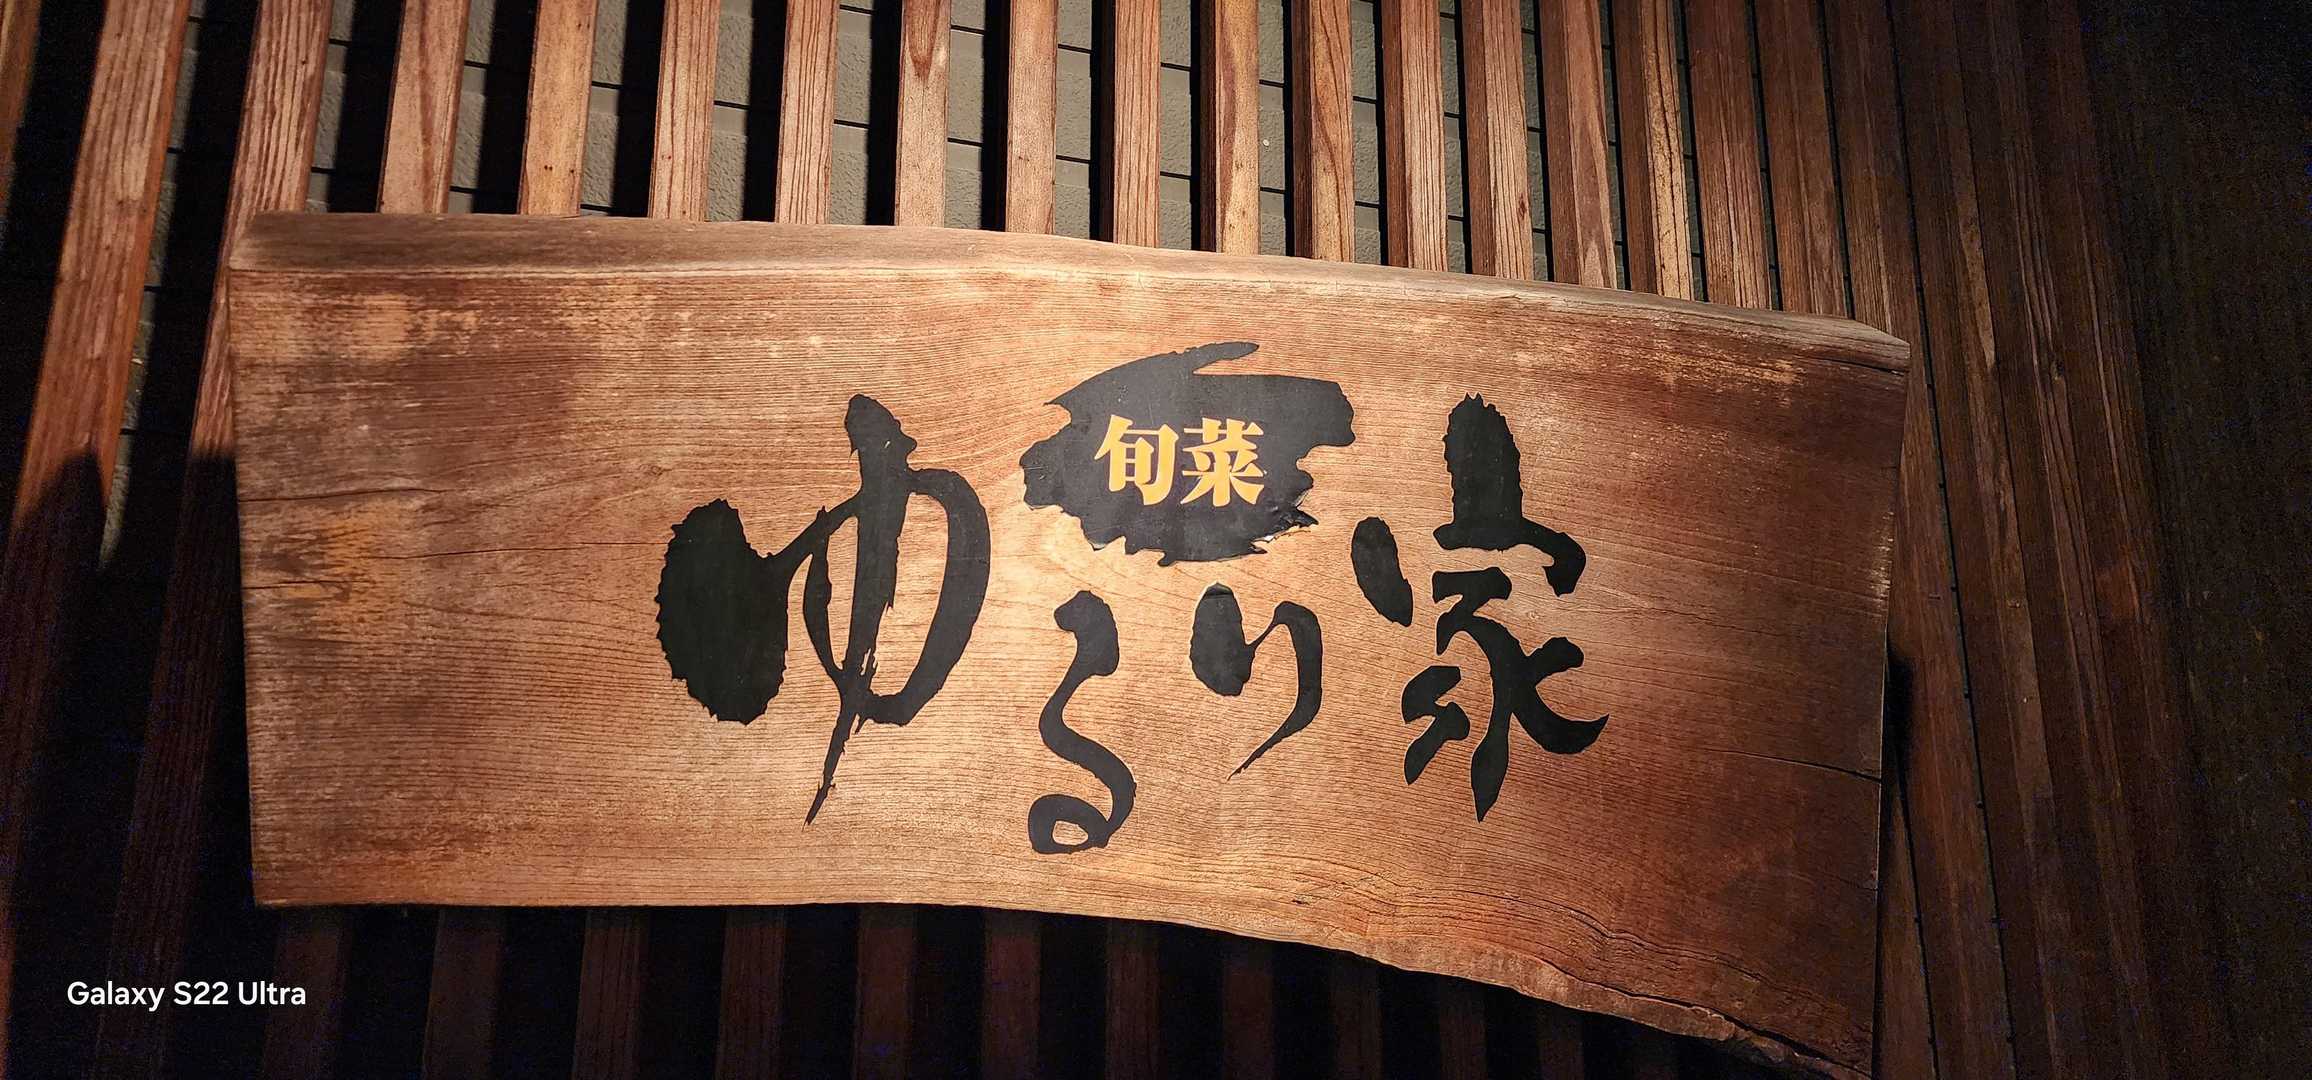 旬菜
ゆるり家
Galaxy S22 Ultra